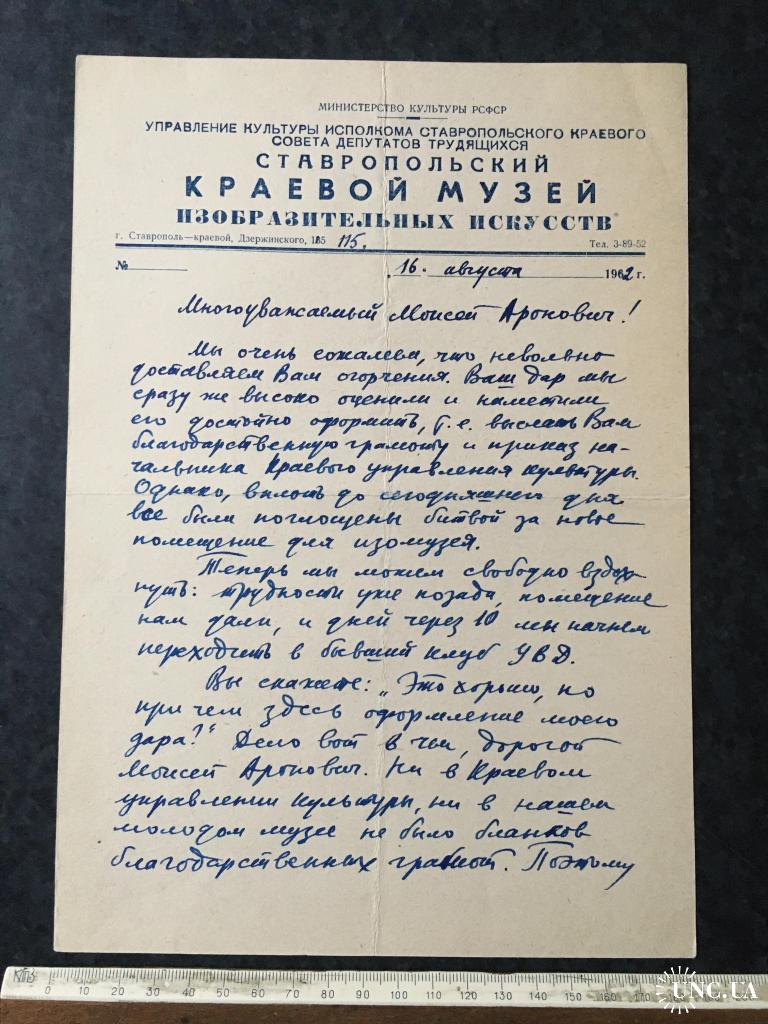 МИНИСТЕРСТВО КУЛЬТУРЫ РСФСР
УПРАВЛЕНИЕ КУЛЬТУРЫ ИСПОЛКОМА СТАВРОПОЛЬСКОГО КРАЕВОГО
СОВЕТА ДЕПУТАТОВ ТРУДЯЩИХСЯ
СТАВРОПОЛЬСКИЙ
КРАЕВОЙ МУЗЕЙ
ИЗОБРАЗИТЕЛЬНЫХ ИСКУССТВ
г. Ставрополь—краевой, Дзержинского, 115.
Тел. 3-89-52
№
„16" августа 1962 г.
Многоуважаемый Моисей Аронович!
Мы очень сожалеем, что невольно
доставляем Вам огорчения. Ваш дар мы
сразу же высоко оценили и наметили
его достойно оформить, т.е. выслать Вам
благодарственную грамоту и приказ на-
чальника Краевого управления культуры.
Однако, вплоть до сегодняшнего дня
все были поглощены битвой за новое
помещение для изомузея.
Теперь мы можем свободно вздох-
нуть: трудности уже позади, помещение
нам дали, и дней через 10 мы начнем
переходить в бывший клуб УВД.
Вы скажете: „Это хорошо, но
при чем здесь оформление моего
дара?" Дело вот в чем, дорогой
Моисей Аронович. Ни в Краевом
управлении культуры, ни в нашем
молодом музее не было бланков
благодарственных грамот. Поэтому
КТПЗ
0 10 20 30 40 50 60 70 80 90 100 110 120 130 140 150 160 170
UNC.UA